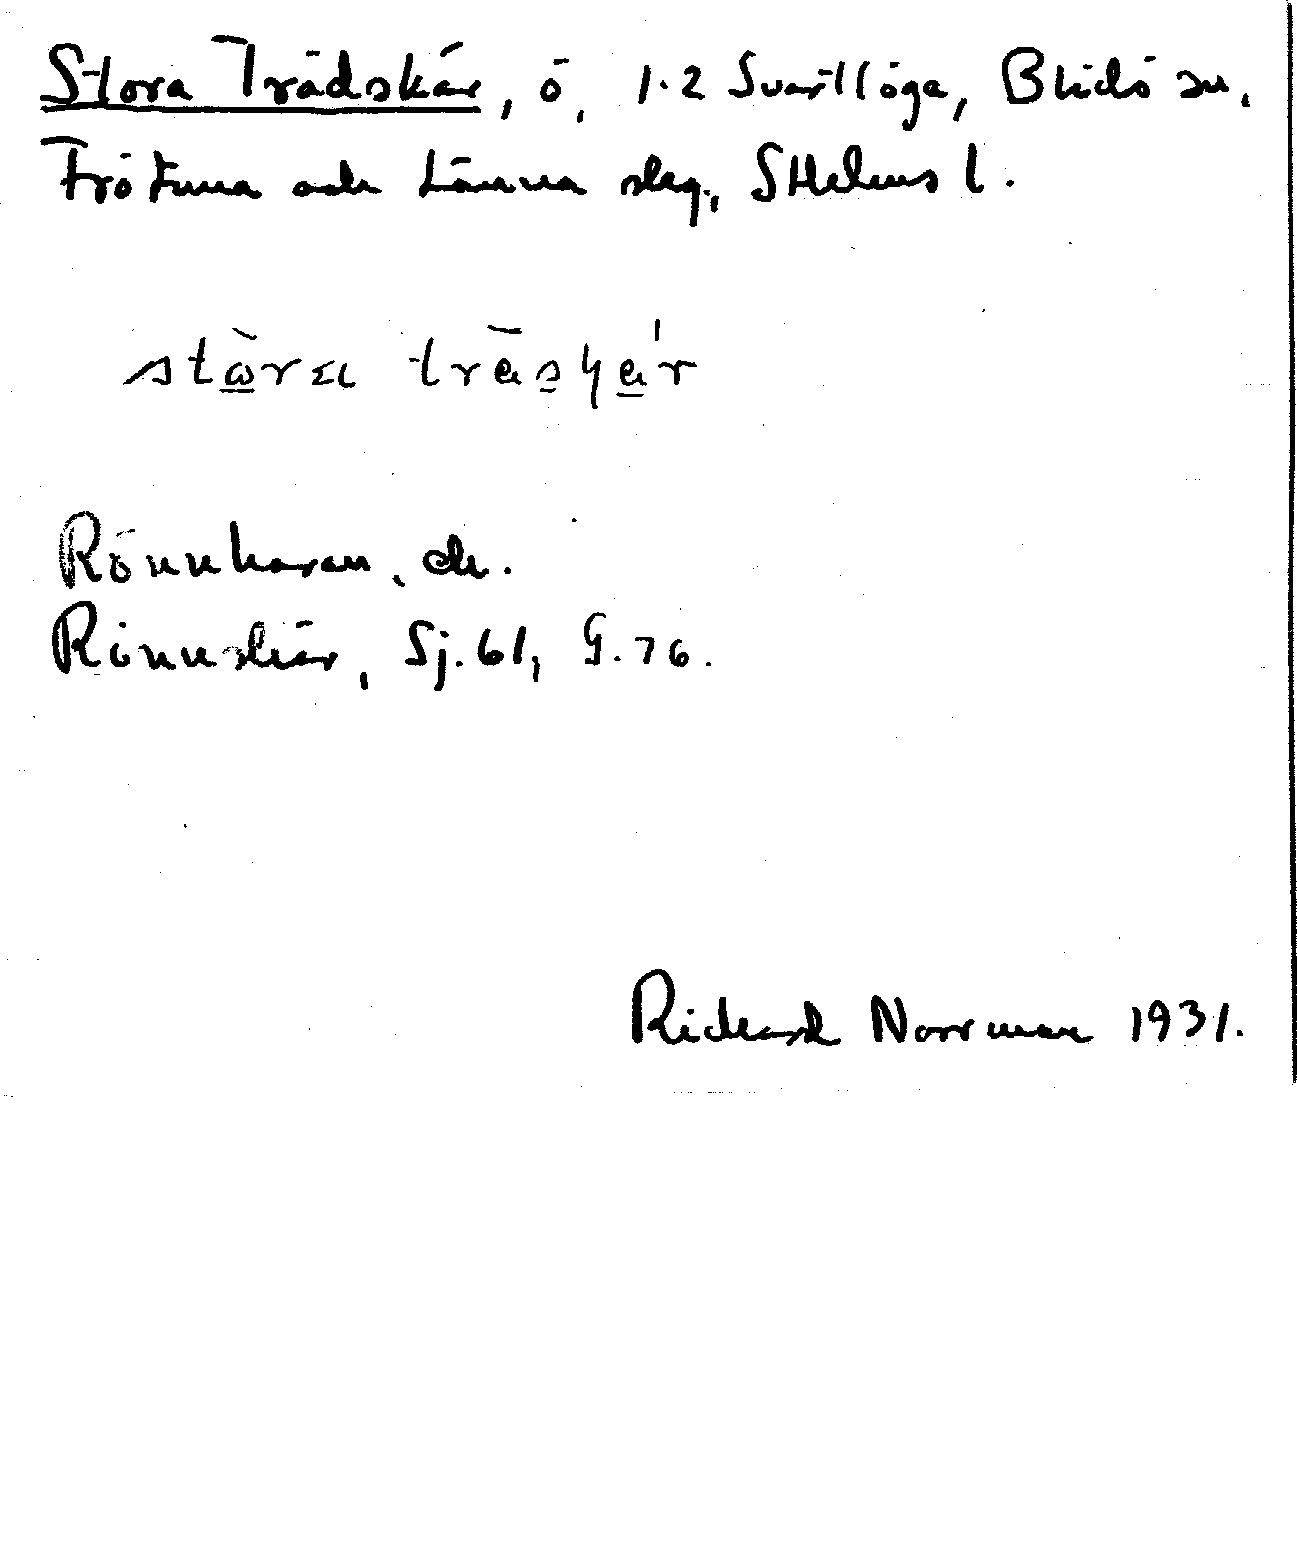 Stora Trädskär, ö, 1.2 Svartlöga, Blidö sn,
Frötuna och Länna skg., Sthlms l.
Rönnharan, ek.
Rönnskär, Sj. 61, G. 76.
Rickard Norrman 1931.